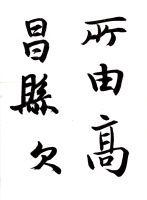 所由高
昌縣欠